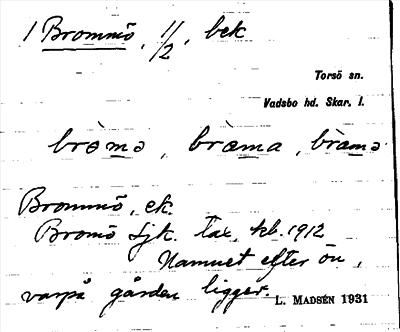 1 Brommö, 1/2, bek
Torsö sn.
Vadsbo hd. Skar. l.
bròmə, bròma, bràmə
Brommö, ek.
Bromö Sjk. Tax, kb. 1912
Namnet efter ön,
varpå gården ligger.
L. MADSÉN 1931